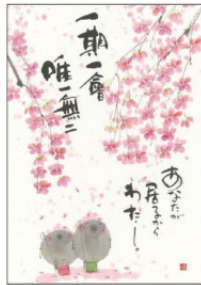 一期一會
唯一無二
あなたが
居るから
わたし。